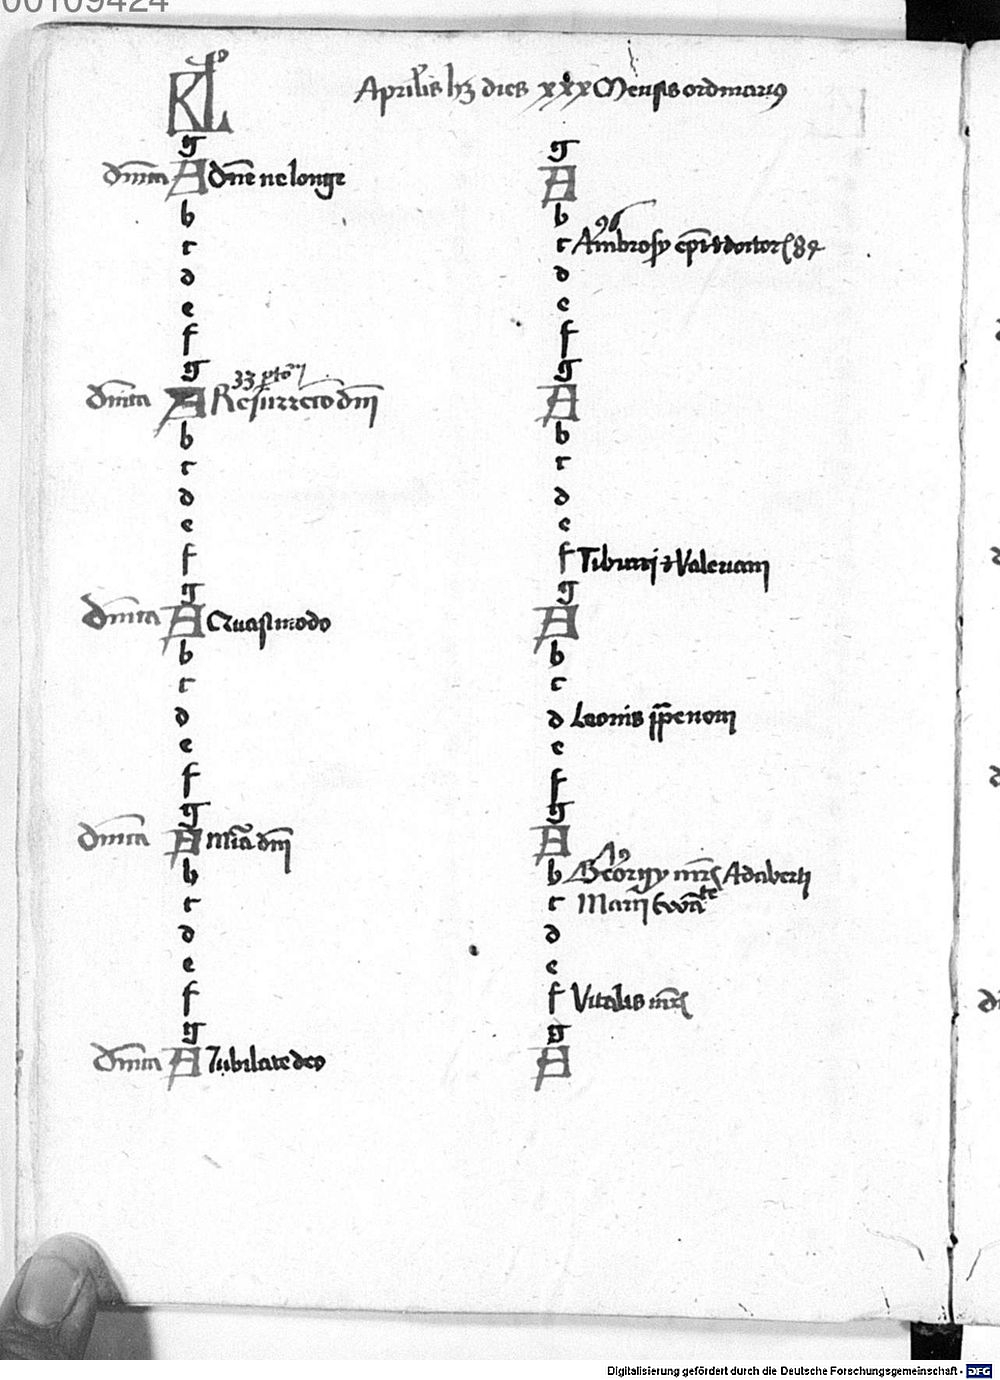 00109424
KL Aprilis hꝫ dies xxx Mensis ordinariꝰ
g
dn̄ica A dn̄e ne longe
b
c
d
e
f
g
dn̄ica A Resurrectō dn̄i
b
c
d
e
f
g
dn̄ica A Quasimodo
b
c
d
e
f
g
dn̄ica A Mīa dn̄i
b
c
d
e
f
g
dn̄ica A Jubilate deo
g
A
b
c Ambrosy ep̄i et doctor
d
e
f
g
A
b
c
d
e
f Tiburcij et Valeriani
g
A
b
c
d Leonis pp̄e noni
e
f
g
A
b Georgy mr̄ Adalberti
c Marci
d
e
f Vitalis mr̄
g
A
Digitalisierung gefördert durch die Deutsche Forschungsgemeinschaft - DFG